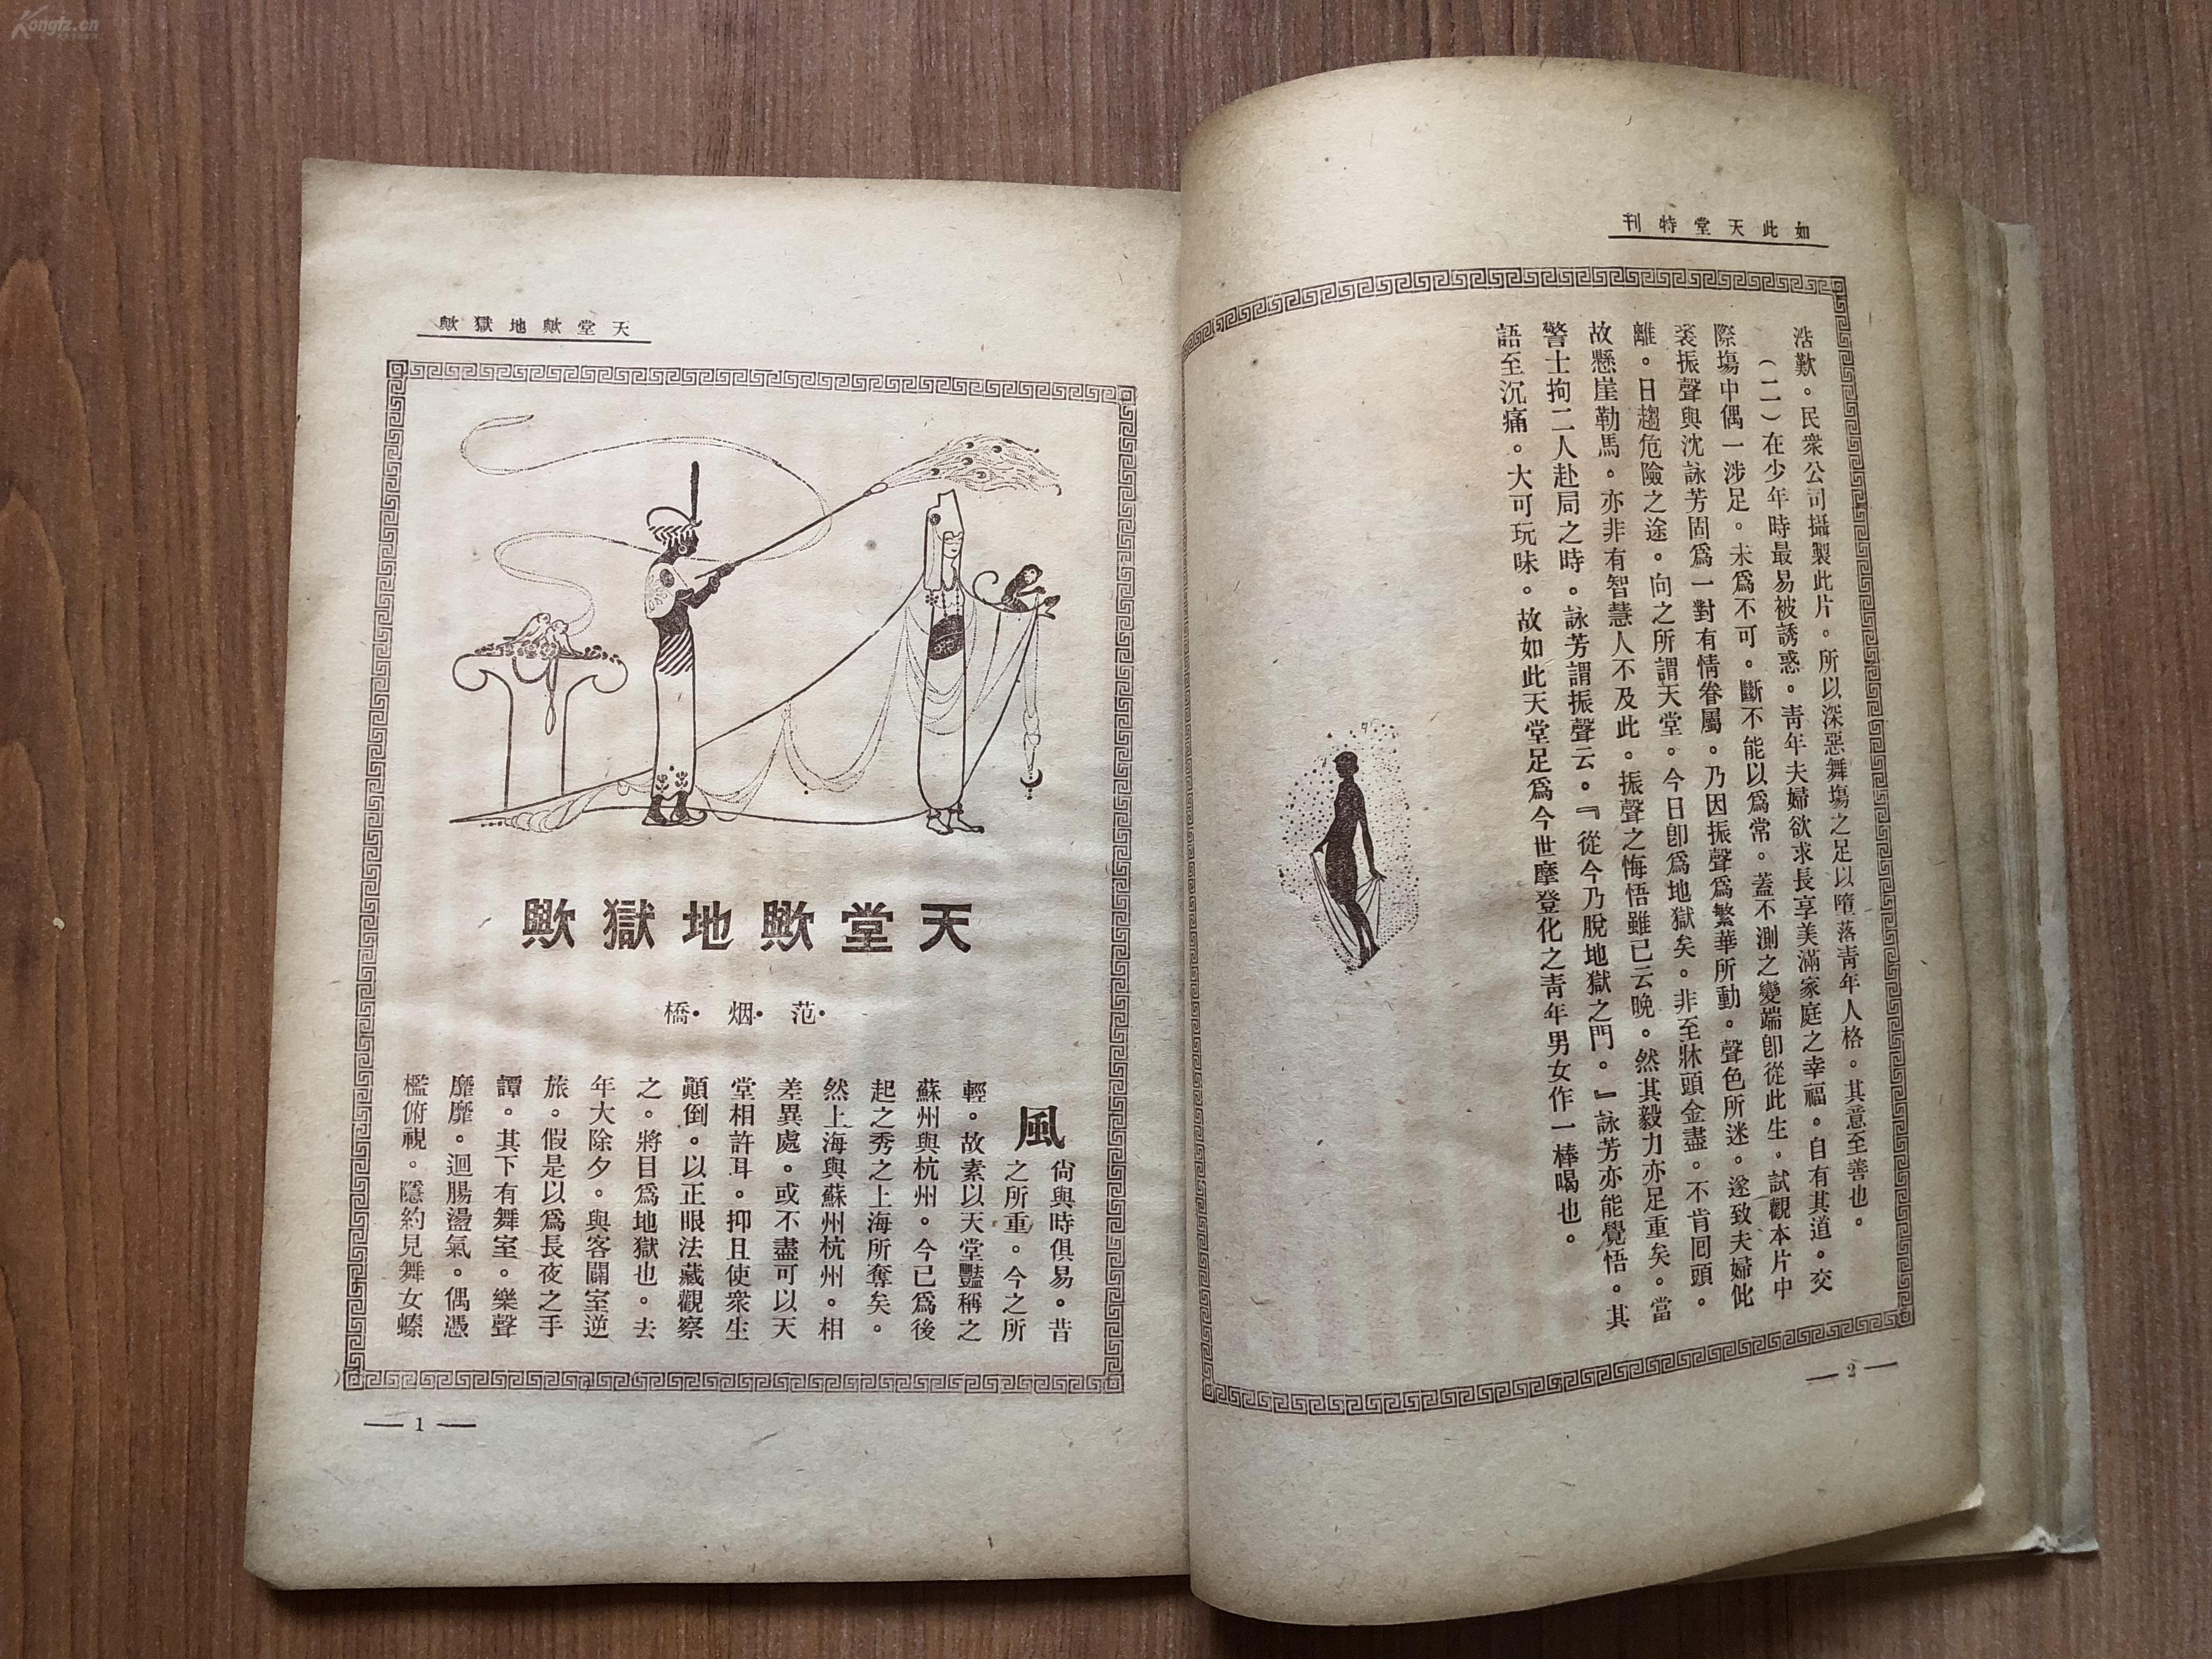 如此天堂特刊
浩歎。民衆公司攝製此片。所以深惡舞塲之足以墮落青年人格。其意至善也。
(二)在少年時最易被誘惑。青年夫婦欲求長享美滿家庭之幸福。自有其道。交
際塲中偶一涉足。未爲不可。斷不能以爲常。蓋不測之變端卽從此生。試觀本片中
裘振聲與沈詠芳固爲一對有情眷屬。乃因振聲爲繁華所動。聲色所迷。遂致夫婦仳
離。日趨危險之途。向之所謂天堂。今日卽爲地獄矣。非至牀頭金盡。不肯囘頭。
故懸崖勒馬。亦非有智慧人不及此。振聲之悔悟雖已云晚。然其毅力亦足重矣。當
警士拘二人赴局之時。詠芳謂振聲云。『從今乃脫地獄之門。』詠芳亦能覺悟。其
語至沉痛。大可玩味。故如此天堂足爲今世摩登化之青年男女作一棒喝也。
— 2 —
天堂歟地獄歟
天堂歟地獄歟
范·烟·橋·
風尙與時俱易。昔
之所重。今之所
輕。故素以天堂豔稱之
蘇州與杭州。今已爲後
起之秀之上海所奪矣。
然上海與蘇州杭州。相
差異處。或不盡可以天
堂相許耳。抑且使衆生
顚倒。以正眼法藏觀察
之。將目爲地獄也。去
年大除夕。與客闢室逆
旅。假是以爲長夜之手
譚。其下有舞室。樂聲
靡靡。迴腸盪氣。偶憑
檻俯視。隱約見舞女螓
— 1 —
Kongfz.cn